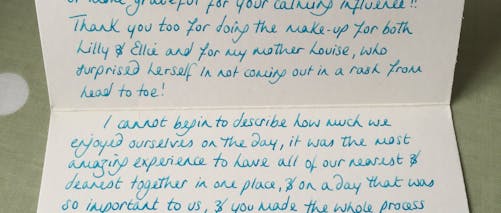 grateful for your calming influence!!
Thank you too for doing the make-up for both
Lilly & Ellie and for my mother Louise, who
surprised herself in not coming out in a rash from
head to toe!
I cannot begin to describe how much we
enjoyed ourselves on the day, it was the most
amazing experience to have all of our nearest &
dearest together in one place, & on a day that was
so important to us, & you made the whole process